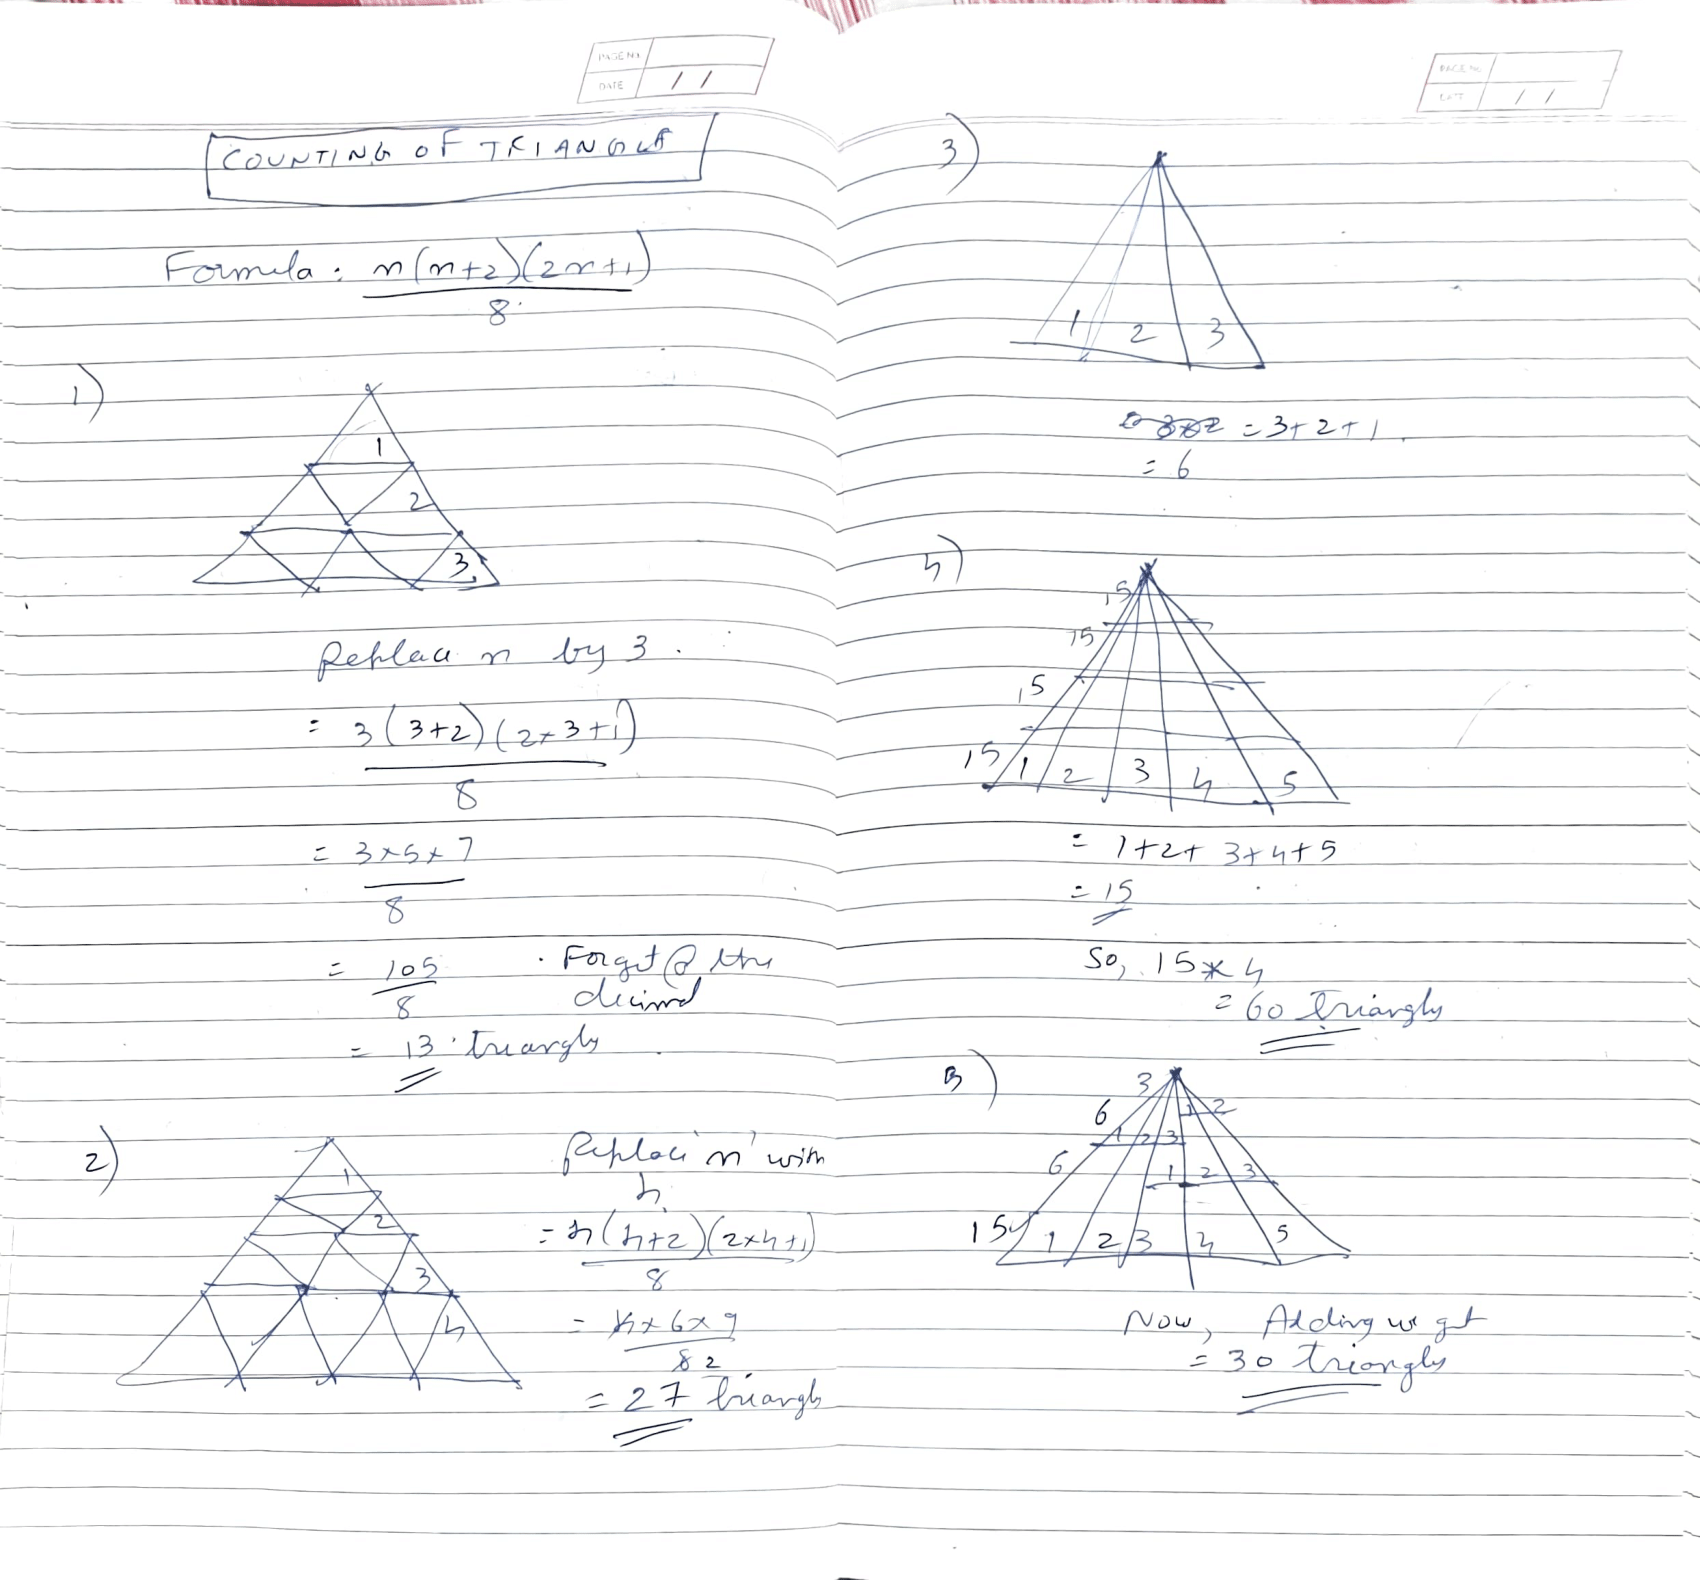 PAGE No.
DATE / /
COUNTING OF TRIANGLE
Formula : n(n+2)(2n+1)
8
1)
1
2
3
Replace n by 3.
= 3(3+2)(2×3+1)
8
= 3×5×7
8
= 105 . Forget the
8 decimal
= 13 triangles
2)
1
2
3
4
Replace 'n' with
4
= 4(4+2)(2×4+1)
8
= 4×6×9
8 2
= 27 triangles
PAGE No
DATE / /
3)
1 2 3
= 3+2+1
= 6
4)
15
15
15
15 1 2 3 4 5
= 1+2+3+4+5
= 15
So, 15×4
= 60 triangles
3 1 2
6 1 2 3
6 1 2 3
15 1 2 3 4 5
Now, Adding we get
= 30 triangles